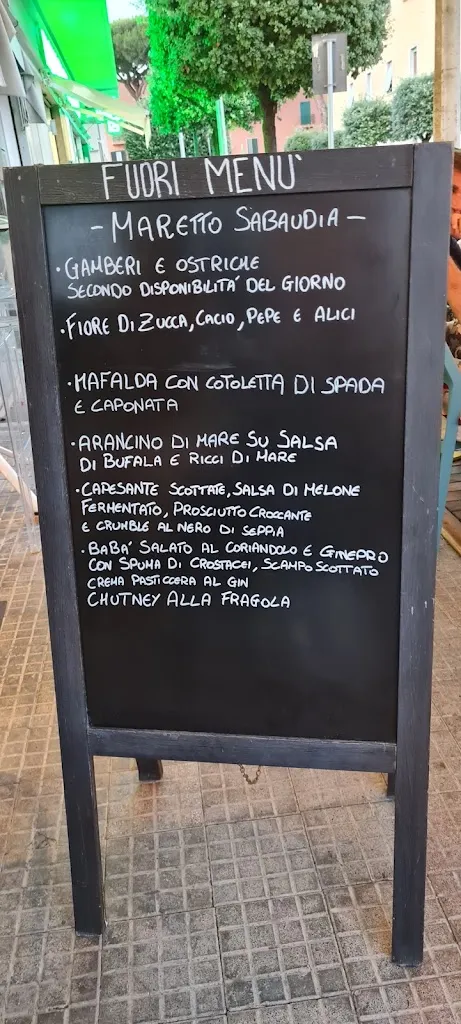 FUORI MENU'
- MARETTO SABAUDIA -
· GAMBERI E OSTRICHE
SECONDO DISPONIBILITA' DEL GIORNO
· FIORE DI ZUCCA, CACIO, PEPE E ALICI
· MAFALDA CON COTOLETTA DI SPADA
E CAPONATA
· ARANCINO DI MARE SU SALSA
DI BUFALA E RICCI DI MARE
· CAPESANTE SCOTTATE, SALSA DI MELONE
FERMENTATO, PROSCIUTTO CROCCANTE
E CRUMBLE AL NERO DI SEPPIA
· BABA' SALATO AL CORIANDOLO E GINEPRO
CON SPUMA DI CROSTACEI, SCAMPO SCOTTATO
CREMA PASTICCERA AL GIN
CHUTNEY ALLA FRAGOLA